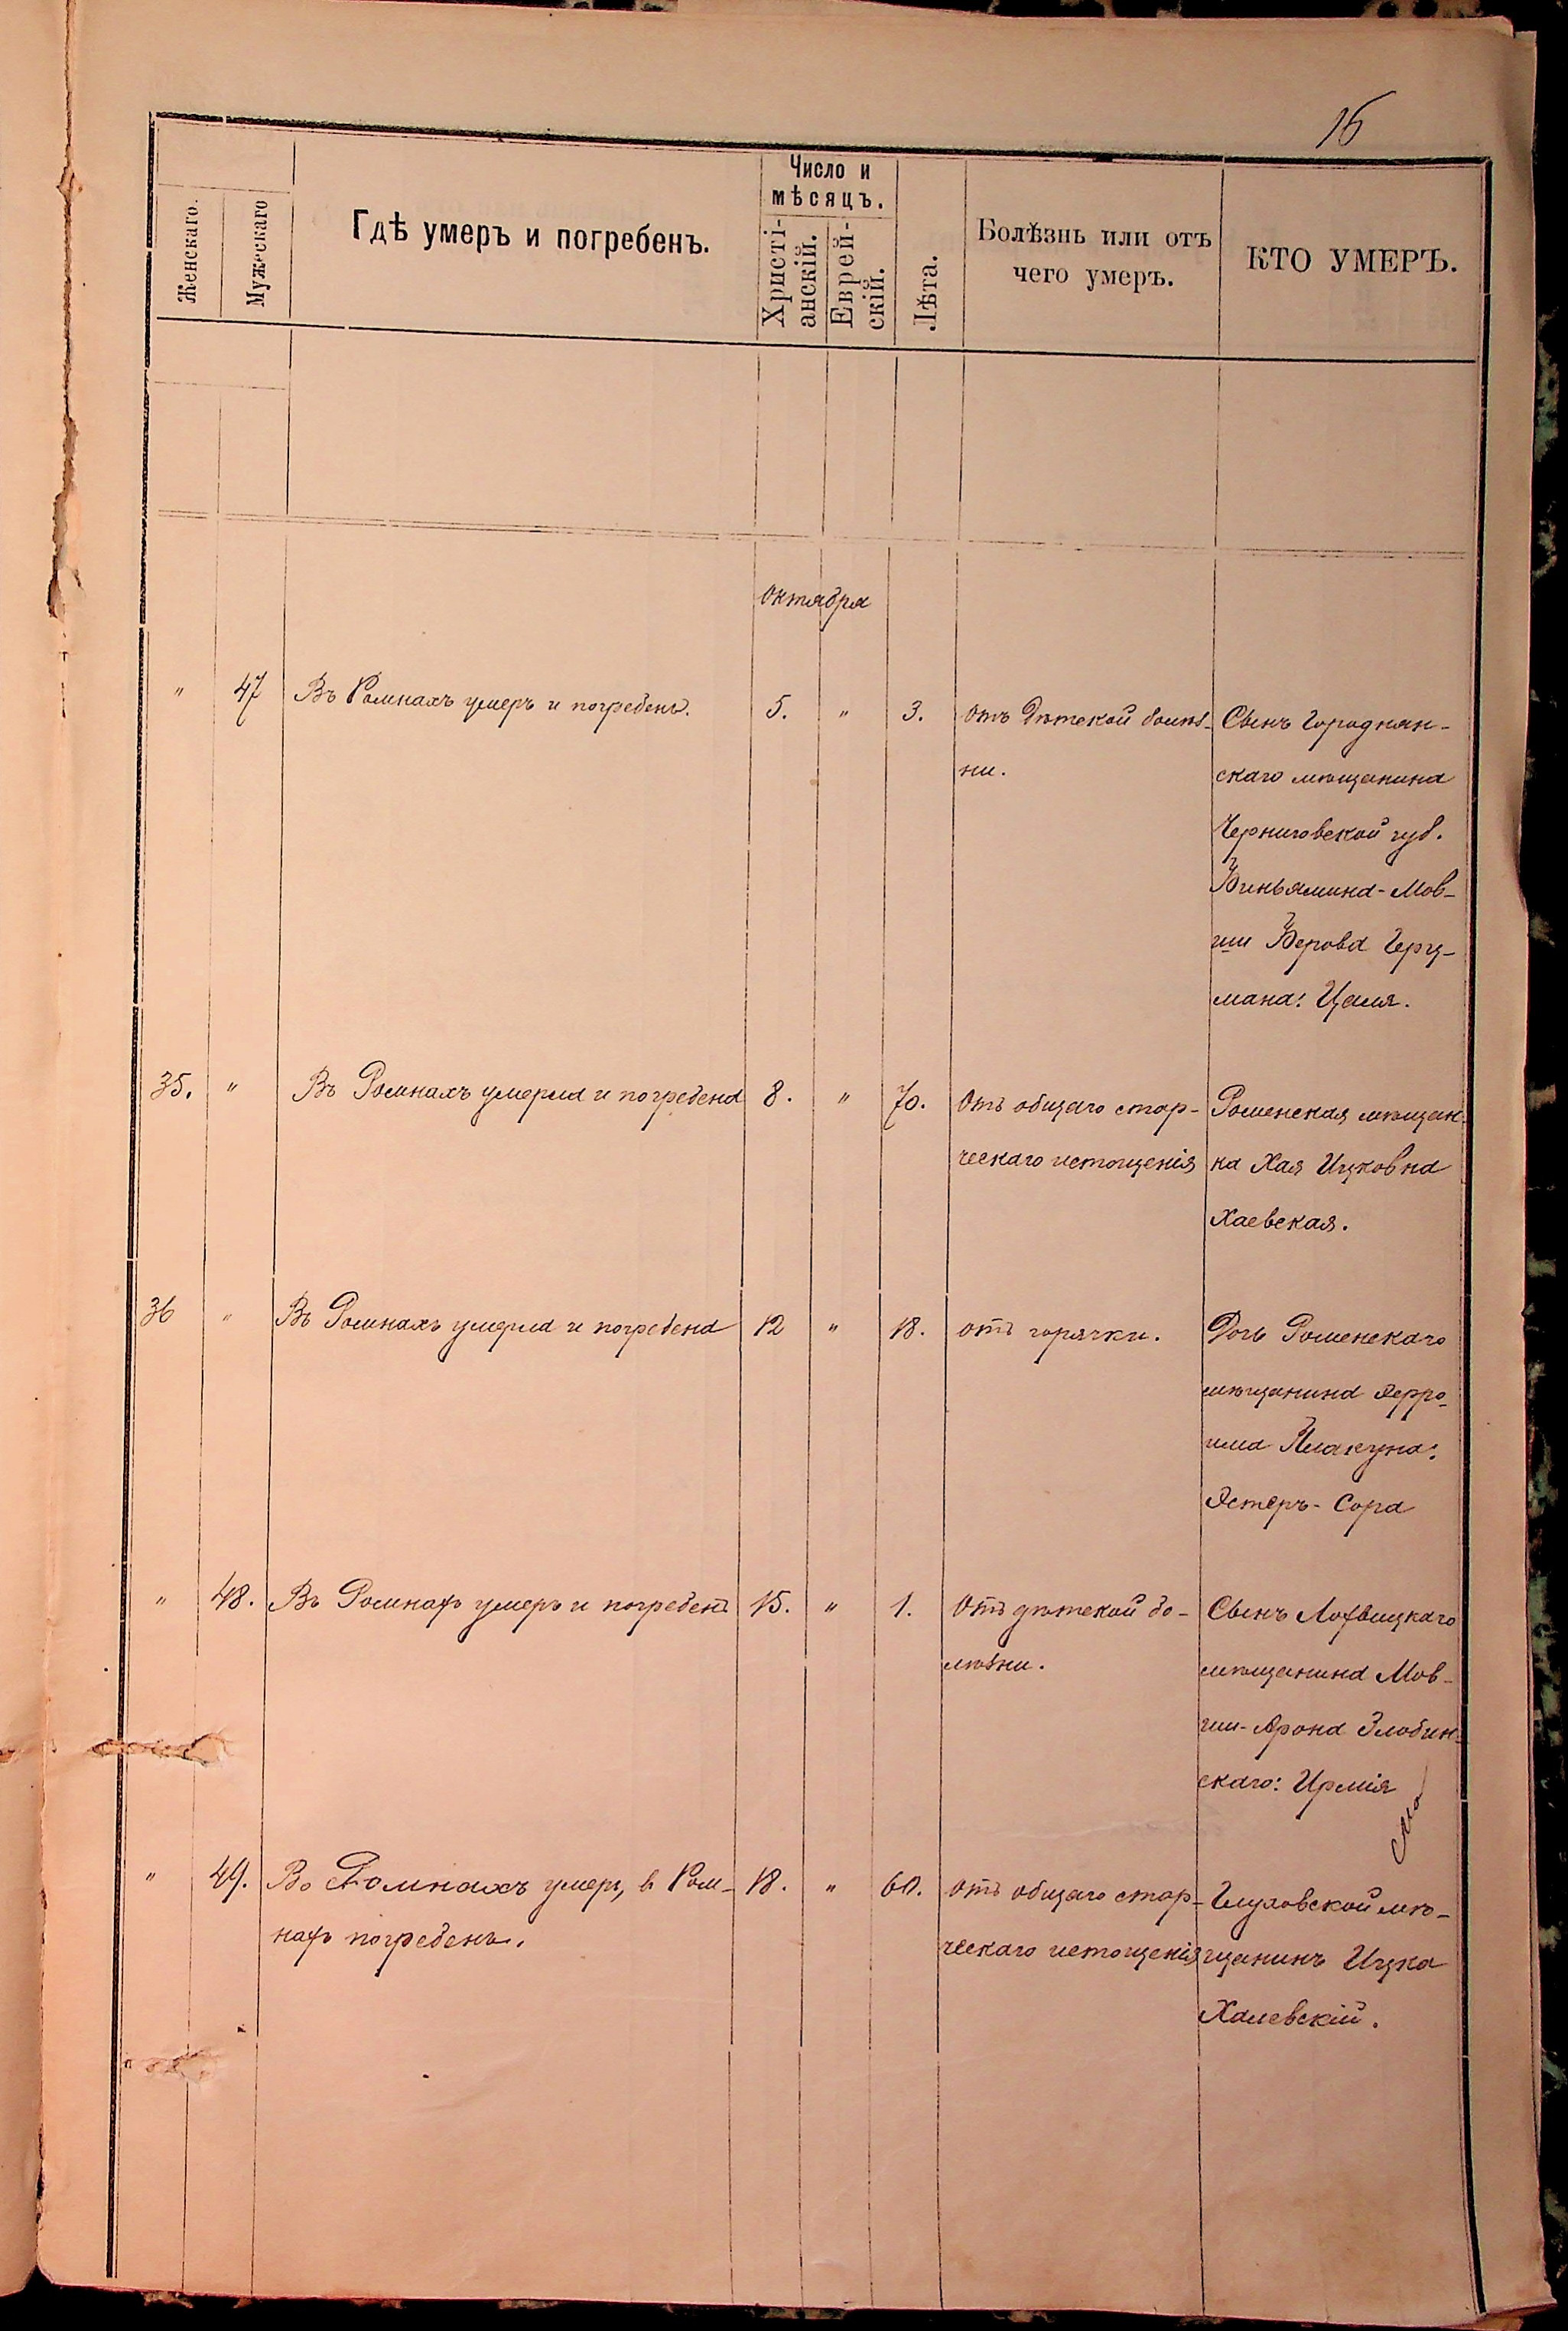 16
Женскаго.
Мужескаго
Гдѣ умеръ и погребенъ.
Число и
мѣсяцъ.
Христі-
анскій.
Еврей-
скій.
Лѣта.
Болѣзнь или отъ
чего умеръ.
КТО УМЕРЪ.
Октября
" 47 Въ Ромнахъ умеръ и погребенъ. 5. " 3. отъ дѣтской болѣз- Сынъ Городнян-
ни. скаго мѣщанина
Черниговской губ.
Биньямина-Мов-
ши Берова Герц-
мана: Цаля.
35. " Въ Ромнахъ умерла и погребена 8. " 70. Отъ общаго стар- Роменская мѣщан-
ческаго истощенія ка Хая Ицковна
Хаевская.
36 " Въ Ромнахъ умерла и погребена 12 " 18. отъ горячки. Дочь Роменскаго
мѣщанина Эфро-
има Плакуна:
Эстеръ-Сора
" 48. Въ Ромнахъ умеръ и погребенъ 15. " 1. Отъ дѣтской бо- Сынъ Лохвицкаго
лѣзни. мѣщанина Мов-
ши-Арона Злобин-
скаго: Ирмія
" 49. Въ Ромнахъ умеръ, в Ром- 18. " 60. отъ общаго стар- Глуховской мѣ-
нахъ погребенъ. ческаго истощенія щанинъ Ицка
Халевскій.